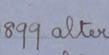 899 alter